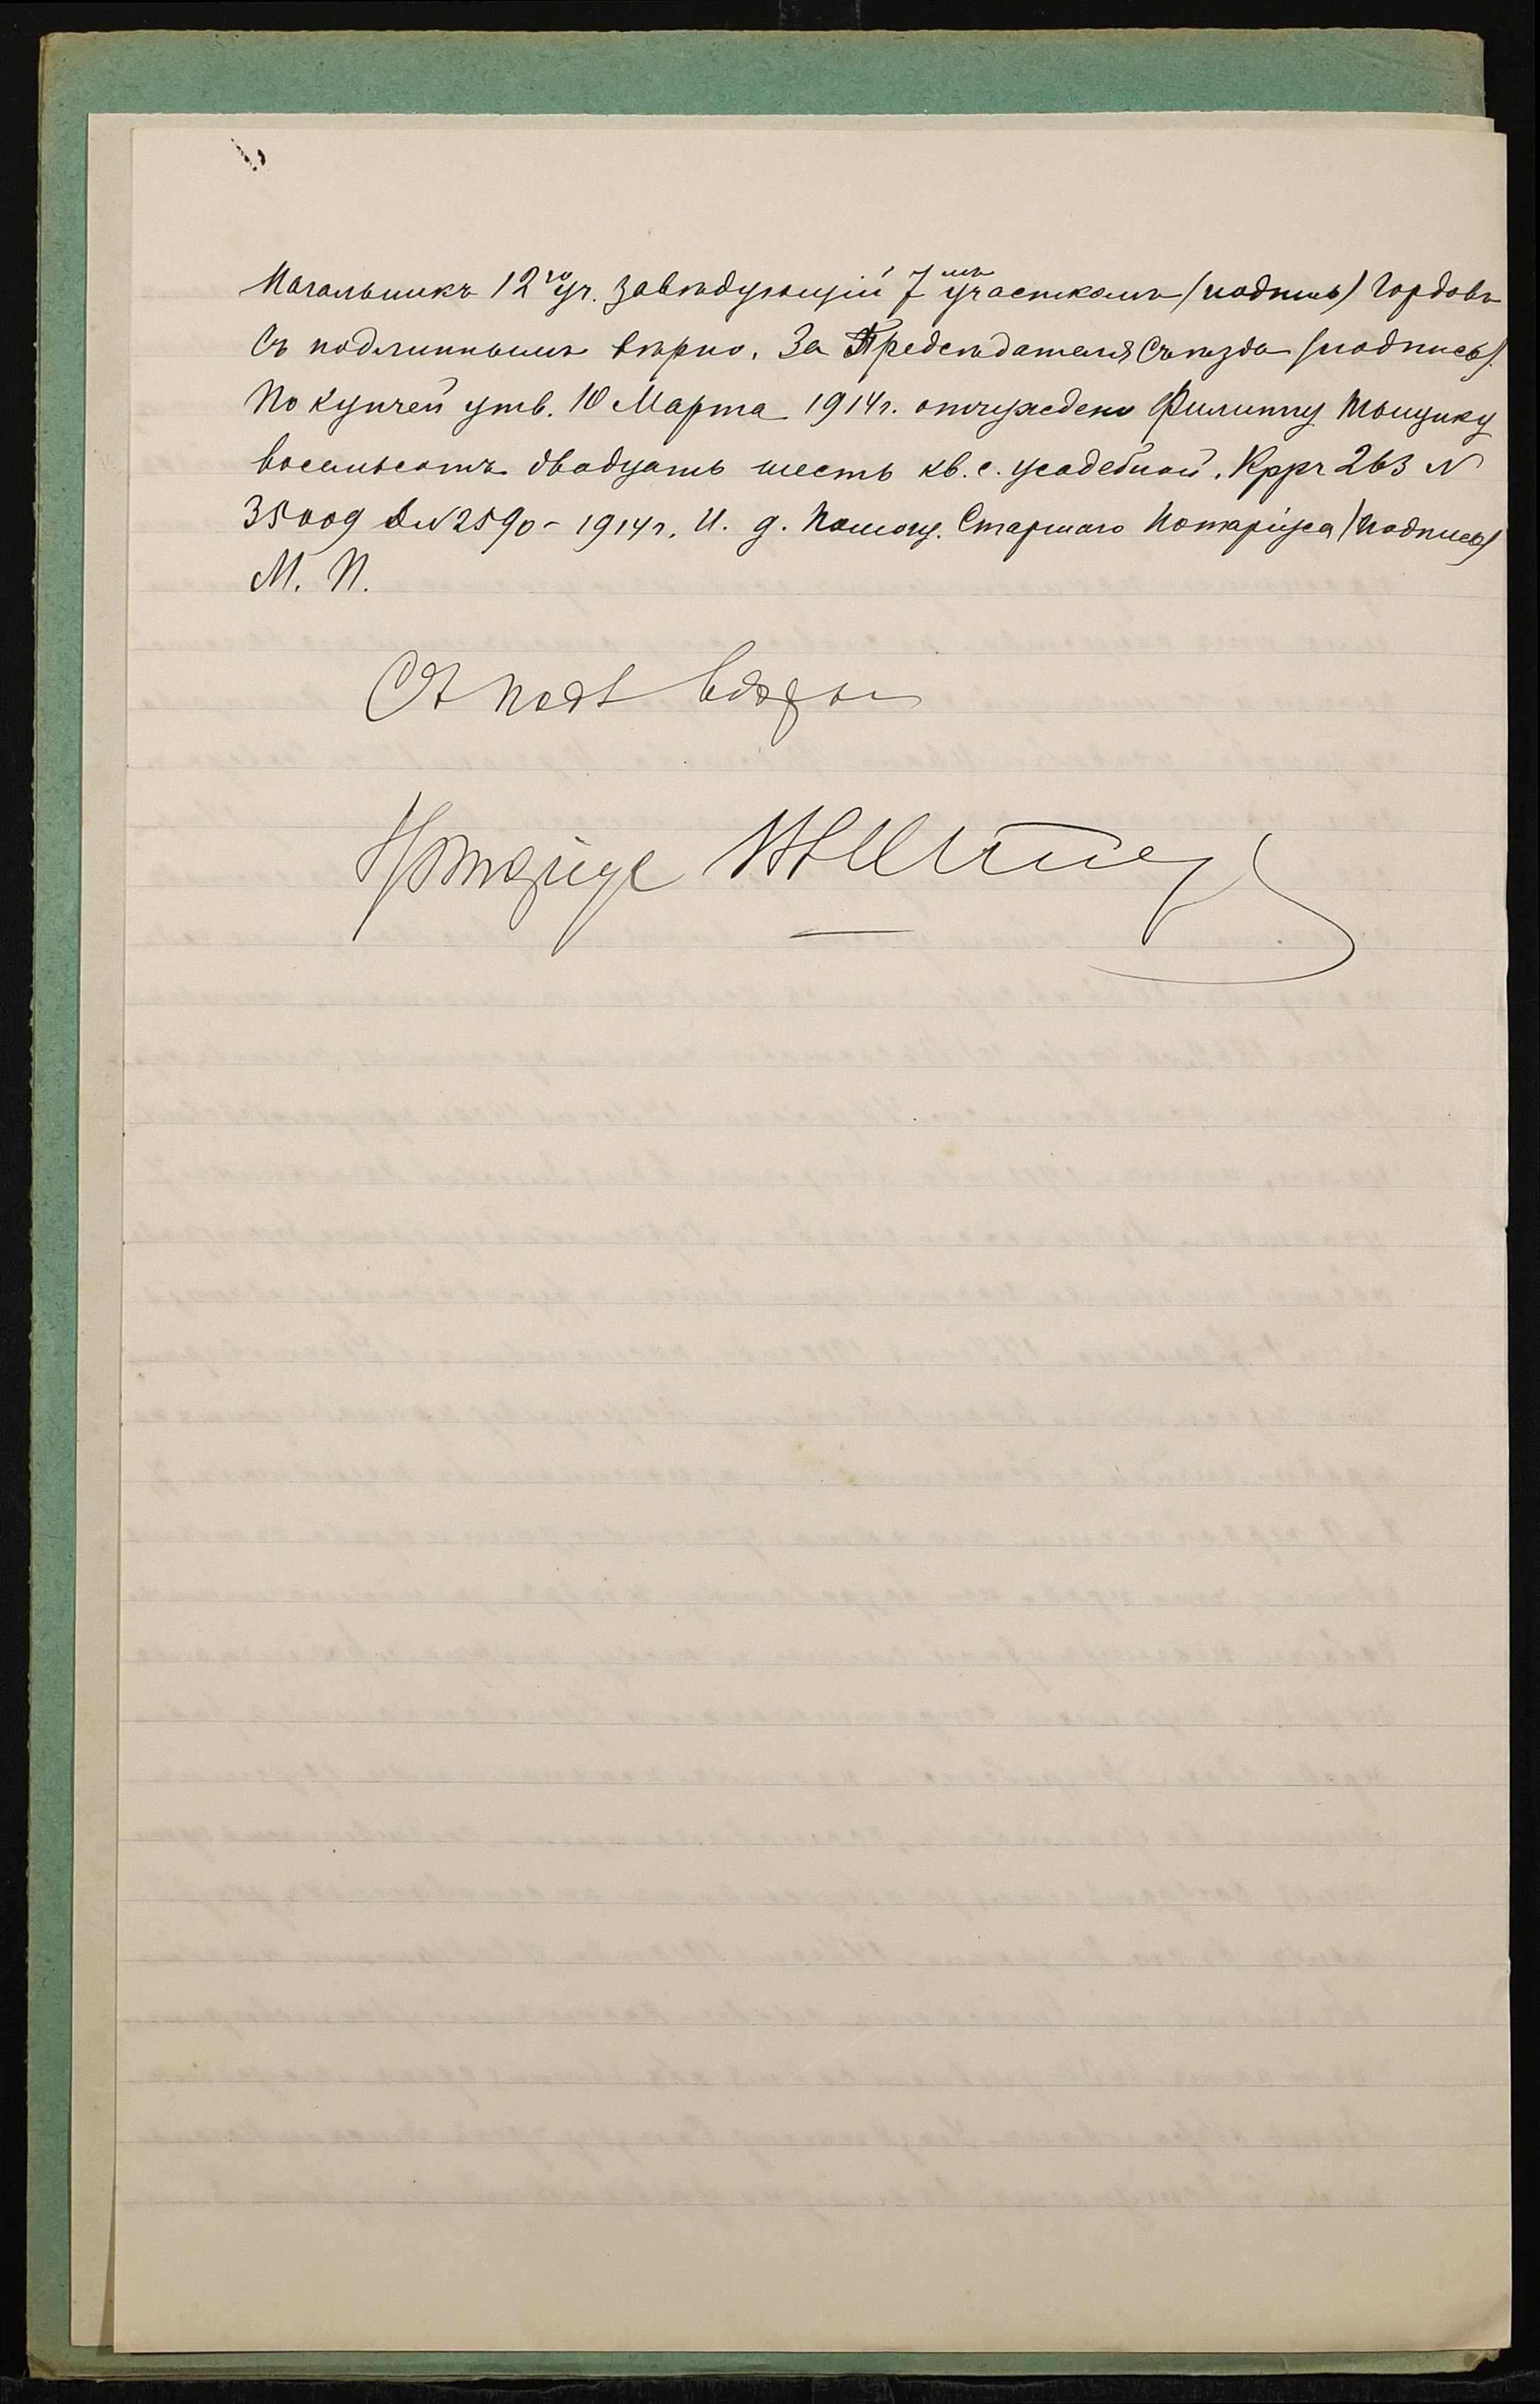 Начальникъ 12го уч. Завѣдующій 7мъ участкомъ /подпись/ Гордовъ
Съ подлиннымъ вѣрно. За Предсѣдателя Съѣзда /подпись/.
По купчей утв. 10 Марта 1914 г. отчуждено Филиппу Тыщику
восемьсотъ двадцать шесть кв. с. усадебной. Крръ 263 №
35009 д № 2590 - 1914 г. И. д. Помощ. Старшаго Нотаріуса /подпись/
М. П.
Съ подл вѣрно
Нотаріусъ